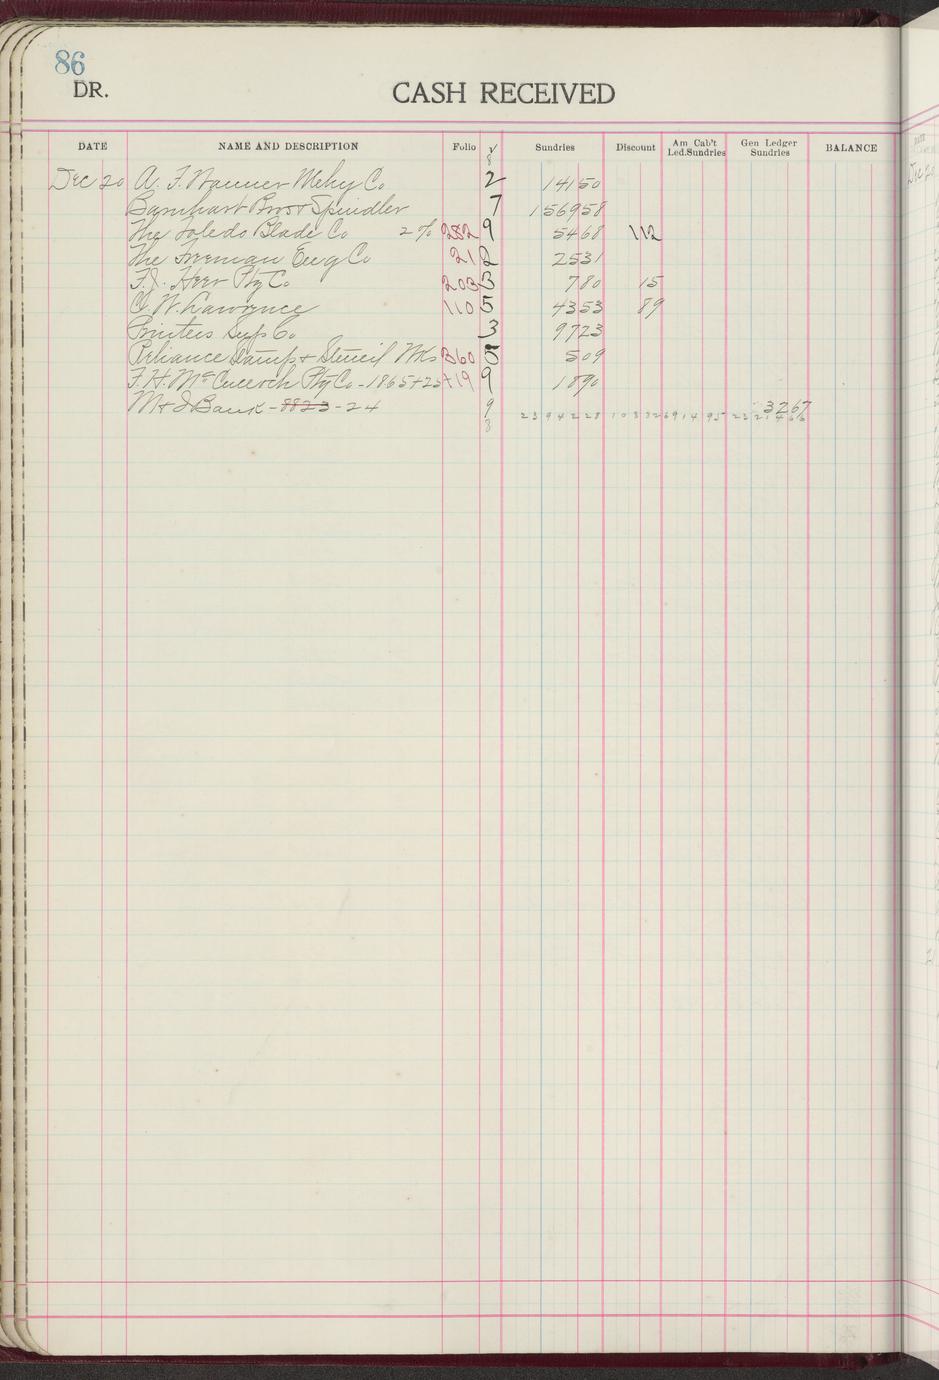 86
DR.
CASH RECEIVED
DATE NAME AND DESCRIPTION Folio √ Sundries Discount Am Cab't Led.Sundries Gen Ledger Sundries BALANCE
8
Dec 20 A. F. Wanner Mchy Co 2 14150
Barnhart Bros & Spindler 7 156958
The Toledo Blade Co 2% 282 9 5468 112
The Freeman Eng Co 212 2 2531
F.J. Heer Ptg Co 203 3 780 15
C. W. Lawrence 110 5 4353 89
Printers Sup Co 3 9723
Reliance Stamp & Stencil Wks 360 5 509
F. H. McCulloch Ptg Co - 1865+25 +19 9 1890
M & I Bank - 8823 - 24 9 3267
8 23 9 4 2 28 10 3 3 2 6914 95 23 21 4 66